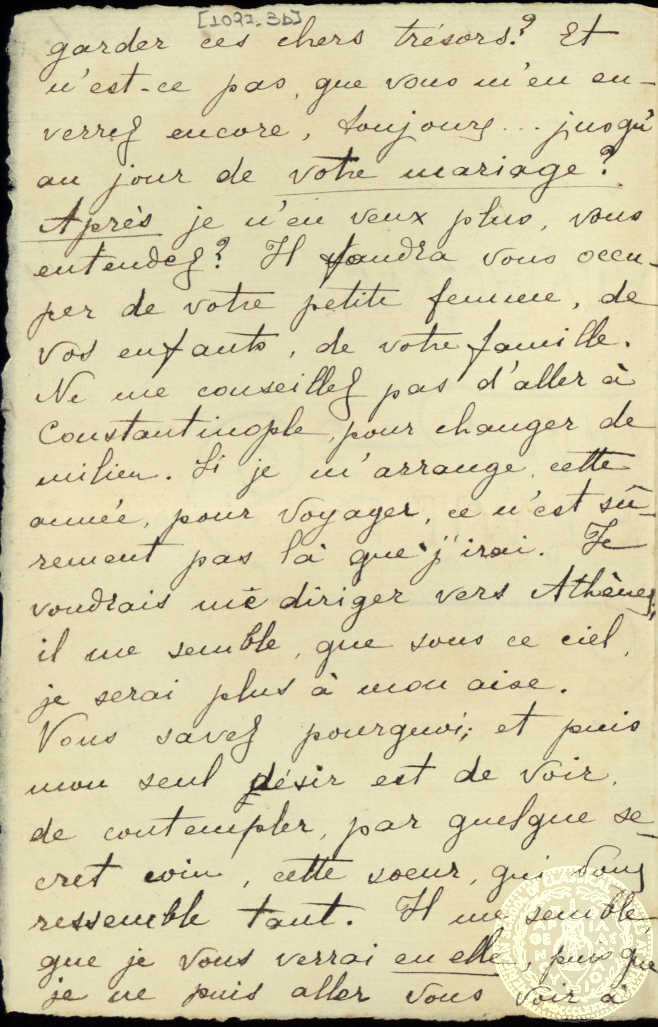 [1027-3b]
garder ces chers trésors? Et
n'est-ce pas, que vous m'en en-
verrez encore, toujours... jusqu'
au jour de votre mariage?
Après je n'en veux plus, vous
entendez? Il faudra vous occu-
per de votre petite femme, de
vos enfants, de votre famille.
Ne me conseillez pas d'aller à
Constantinople, pour changer de
milieu. Si je m'arrange, cette
année, pour voyager, ce n'est sû-
rement pas là que j'irai. Je
voudrais me diriger vers Athènes,
il me semble, que sous ce ciel,
je serai plus à mon aise.
Vous savez pourquoi; et puis
mon seul désir est de voir,
de contempler, par quelque se-
cret coin, cette soeur, qui vous
ressemble tant. Il me semble,
que je vous verrai en elle, puisque
je ne puis aller vous voir à